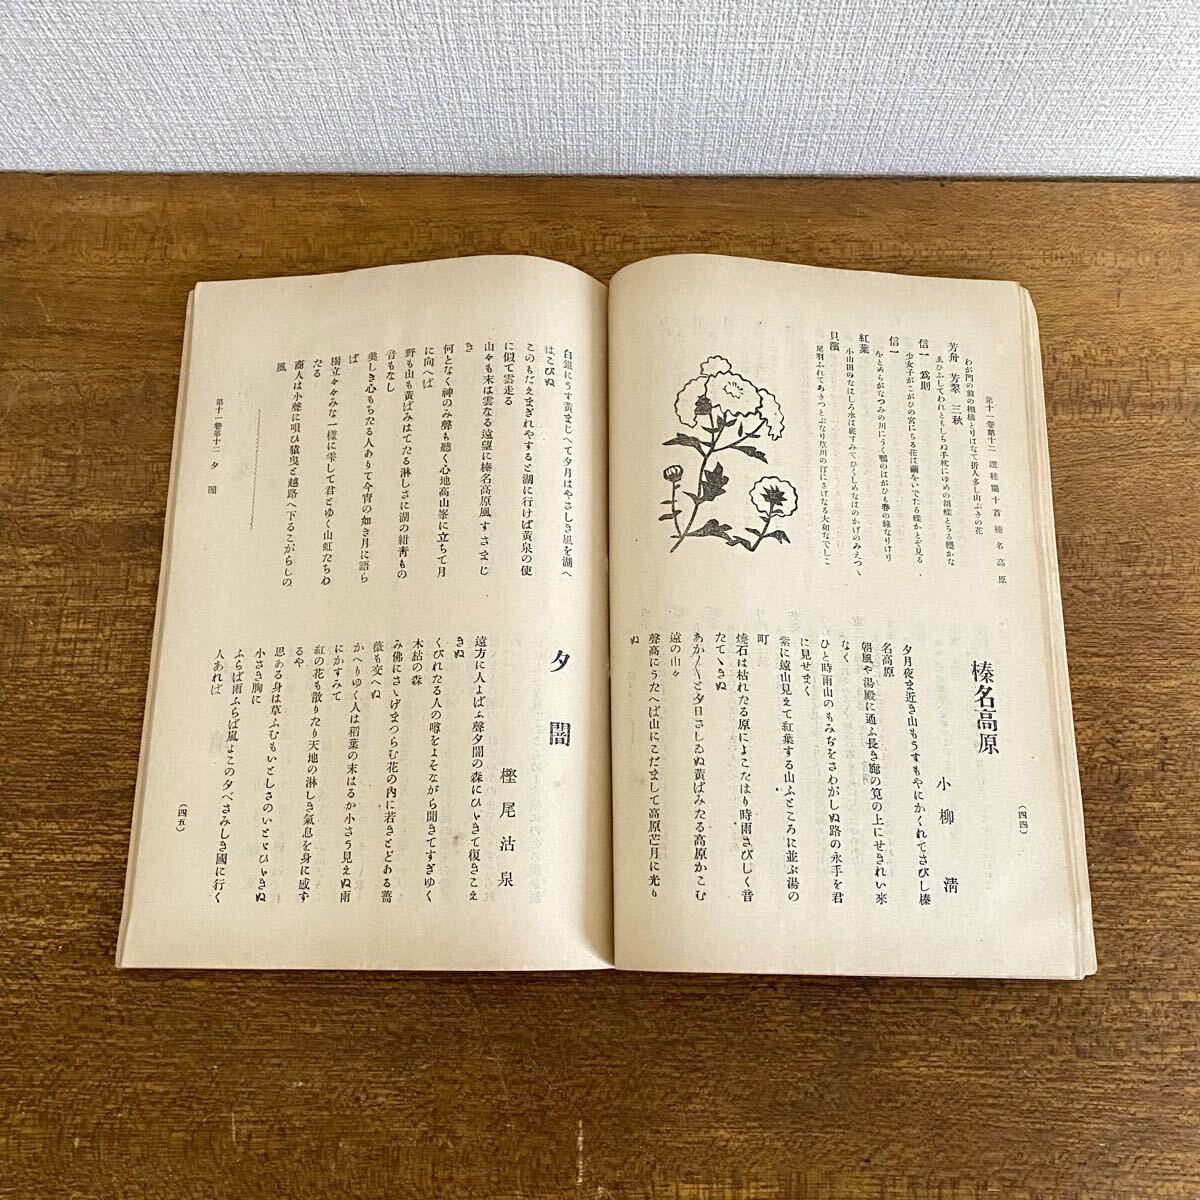 第十一卷第十二 選桂園十首 榛名高原
わが門の前の棚橋とりはなて折人多し山ぶきの花
芳舟 芳翠 三秋
ゑひふしてわれともしらぬ手枕にゆめの胡蝶とちる櫻かな
信一 爲則
少女子がこがひの宮にちる花は繭をいでたる蝶かとぞ見る
信一
をとめらがなつみの川にうく鴨のはがひも春の綠なりけり
紅葉
小山田のなはしろ水は底すみてひくしめなはのかげのみえつゝ
貝濱
尾羽ふれてあきつとぶなり草川の汀にさけなる大和なでしこ
榛名高原
小柳淸
夕月夜ま近き山もうすもやにかくれてさびし榛
名高原
朝風や湯殿に通ふ長き廊の筧の上にせきれい來
なく
ひと時雨山のもみぢをさわがしぬ路の永手を君
に見せまく
紫に遠山見えて紅葉する山ふところに並ぶ湯の
町
燒石は枯れたる原によこたはり時雨さびしく音
たてゝきぬ
あか〳〵と夕日さしゐぬ黃ばみたる高原かこむ
遠の山々
聲高にうたへば山にこだまして高原芒月に光り
ぬ
(四四)
白銀にうす黃まじへて夕月はやさしき風を湖へ
はこびぬ
このもだえまぎれやすると湖に行けば黃泉の使
に似て雲走る
山々も末は雲なる遠望に榛名高原風すさまじ
き
何となく神のみ聲も聽く心地高山峯に立ちて月
に向へば
野も山も黃ばみはてたる淋しさに湖の紺靑もの
音もなし
美しき心もちたる人ありて今宵の如き月に語ら
ば
樹立々々みな一樣に雫して君とゆく山虹たちわ
たる
商人は小聲に唄ひ猿曳と越路へ下るこがらしの
風
第十一卷第十二 夕闇
夕闇
樫尾沽泉
遠方に人よばふ聲夕闇の森にひゞきて復きこえ
きぬ
くびれたる人の噂をよそながら聞きてすぎゆく
木枯の森
み佛にさゝげまつらむ花の内に若きとどある薔
薇も交へぬ
かへりゆく人は稻葉の末はるか小さう見えぬ雨
にかすみて
紅の花も散りたり天地の淋しき氣息を身に感ず
るや
思ある身は草ふむもいとしさのいとゞひゞきぬ
小さき胸に
ふらば雨ふらば風よこの夕べさみしき國に行く
人あれば
(四五)